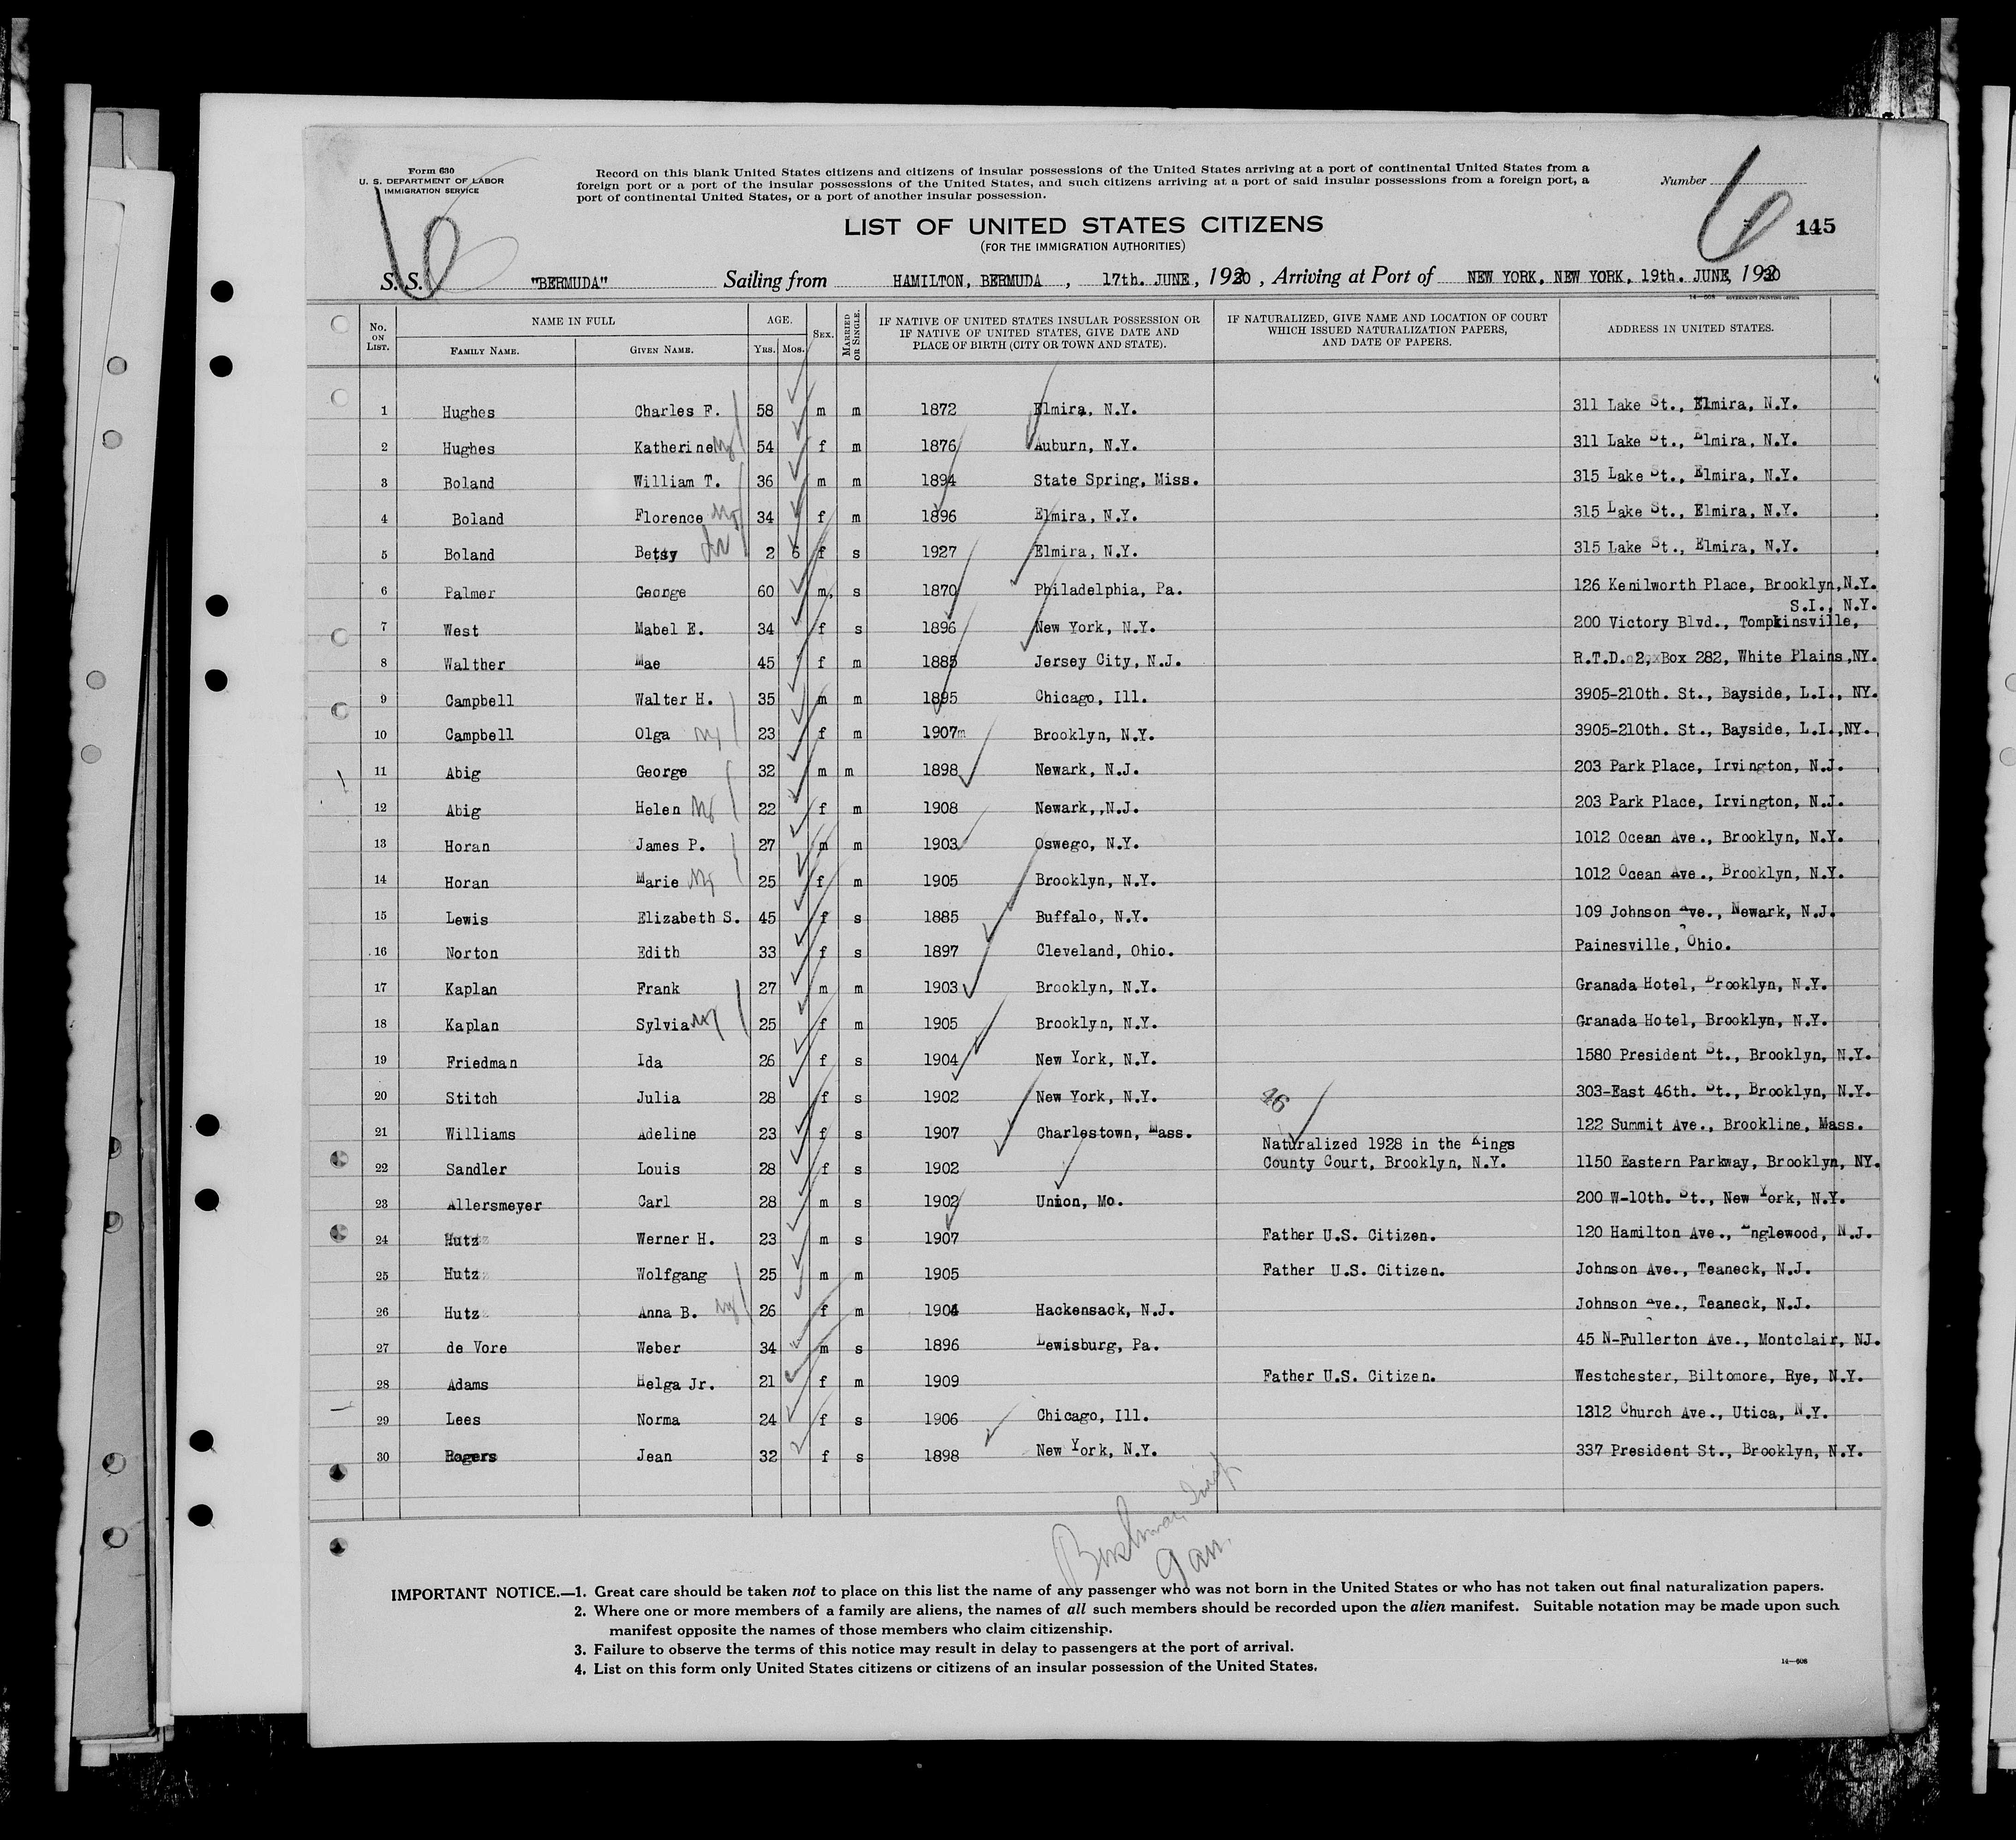 Form 630
U. S. DEPARTMENT OF LABOR
IMMIGRATION SERVICE
Record on this blank United States citizens and citizens of insular possessions of the United States arriving at a port of continental United States from a
foreign port or a port of the insular possessions of the United States, and such citizens arriving at a port of said insular possessions from a foreign port, a
port of continental United States, or a port of another insular possession.
Number 6
6
145
LIST OF UNITED STATES CITIZENS
(FOR THE IMMIGRATION AUTHORITIES)
S. S. "BERMUDA" Sailing from HAMILTON, BERMUDA , 17th. JUNE , 1930 , Arriving at Port of NEW YORK, NEW YORK, 19th. JUNE, 1930
14—608 GOVERNMENT PRINTING OFFICE
No. ON LIST. NAME IN FULL FAMILY NAME. GIVEN NAME. AGE. YRS. MOS. SEX. MARRIED OR SINGLE. IF NATIVE OF UNITED STATES INSULAR POSSESSION OR IF NATIVE OF UNITED STATES, GIVE DATE AND PLACE OF BIRTH (CITY OR TOWN AND STATE). IF NATURALIZED, GIVE NAME AND LOCATION OF COURT WHICH ISSUED NATURALIZATION PAPERS, AND DATE OF PAPERS. ADDRESS IN UNITED STATES.
1 Hughes Charles F. 58 m m 1872 Elmira, N.Y. 311 Lake St., Elmira, N.Y.
2 Hughes Katherine 54 f m 1876 Auburn, N.Y. 311 Lake St., Elmira, N.Y.
3 Boland William T. 36 m m 1894 State Spring, Miss. 315 Lake St., Elmira, N.Y.
4 Boland Florence 34 f m 1896 Elmira, N.Y. 315 Lake St., Elmira, N.Y.
5 Boland Betsy 2 6 f s 1927 Elmira, N.Y. 315 Lake St., Elmira, N.Y.
6 Palmer George 60 m, s 1870 Philadelphia, Pa. 126 Kenilworth Place, Brooklyn,N.Y.
S.I., N.Y.
7 West Mabel E. 34 f s 1896 New York, N.Y. 200 Victory Blvd., Tompkinsville,
8 Walther Mae 45 f m 1885 Jersey City, N.J. R.T.D. 2, Box 282, White Plains,NY.
9 Campbell Walter H. 35 m m 1895 Chicago, Ill. 3905-210th. St., Bayside, L.I., NY.
10 Campbell Olga 23 f m 1907 Brooklyn, N.Y. 3905-210th. St., Bayside, L.I.,NY.
11 Abig George 32 m m 1898 Newark, N.J. 203 Park Place, Irvington, N.J.
12 Abig Helen 22 f m 1908 Newark,,N.J. 203 Park Place, Irvington, N.J.
13 Horan James P. 27 m m 1903 Oswego, N.Y. 1012 Ocean Ave., Brooklyn, N.Y.
14 Horan Marie 25 f m 1905 Brooklyn, N.Y. 1012 Ocean Ave., Brooklyn, N.Y.
15 Lewis Elizabeth S. 45 f s 1885 Buffalo, N.Y. 109 Johnson Ave., Newark, N.J.
16 Norton Edith 33 f s 1897 Cleveland, Ohio. Painesville, Ohio.
17 Kaplan Frank 27 m m 1903 Brooklyn, N.Y. Granada Hotel, Brooklyn, N.Y.
18 Kaplan Sylvia 25 f m 1905 Brooklyn, N.Y. Granada Hotel, Brooklyn, N.Y.
19 Friedman Ida 26 f s 1904 New York, N.Y. 1580 President St., Brooklyn, N.Y.
20 Stitch Julia 28 f s 1902 New York, N.Y. 46 303-East 46th. St., Brooklyn, N.Y.
21 Williams Adeline 23 f s 1907 Charlestown, Mass. 122 Summit Ave., Brookline, Mass.
Naturalized 1928 in the Kings
22 Sandler Louis 28 f s 1902 County Court, Brooklyn, N.Y. 1150 Eastern Parkway, Brooklyn, NY.
23 Allersmeyer Carl 28 m s 1902 Union, Mo. 200 W-10th. St., New York, N.Y.
24 Hutz Werner H. 23 m s 1907 Father U.S. Citizen. 120 Hamilton Ave., Englewood, N.J.
25 Hutz Wolfgang 25 m m 1905 Father U.S. Citizen. Johnson Ave., Teaneck, N.J.
26 Hutz Anna B. 26 f m 1904 Hackensack, N.J. Johnson Ave., Teaneck, N.J.
27 de Vore Weber 34 m s 1896 Lewisburg, Pa. 45 N-Fullerton Ave., Montclair, NJ.
28 Adams Helga Jr. 21 f m 1909 Father U.S. Citizen. Westchester, Biltomore, Rye, N.Y.
29 Lees Norma 24 f s 1906 Chicago, Ill. 1312 Church Ave., Utica, N.Y.
30 Rogers Jean 32 f s 1898 New York, N.Y. 337 President St., Brooklyn, N.Y.
IMPORTANT NOTICE.—1. Great care should be taken not to place on this list the name of any passenger who was not born in the United States or who has not taken out final naturalization papers.
2. Where one or more members of a family are aliens, the names of all such members should be recorded upon the alien manifest. Suitable notation may be made upon such
manifest opposite the names of those members who claim citizenship.
3. Failure to observe the terms of this notice may result in delay to passengers at the port of arrival.
4. List on this form only United States citizens or citizens of an insular possession of the United States.
14—608